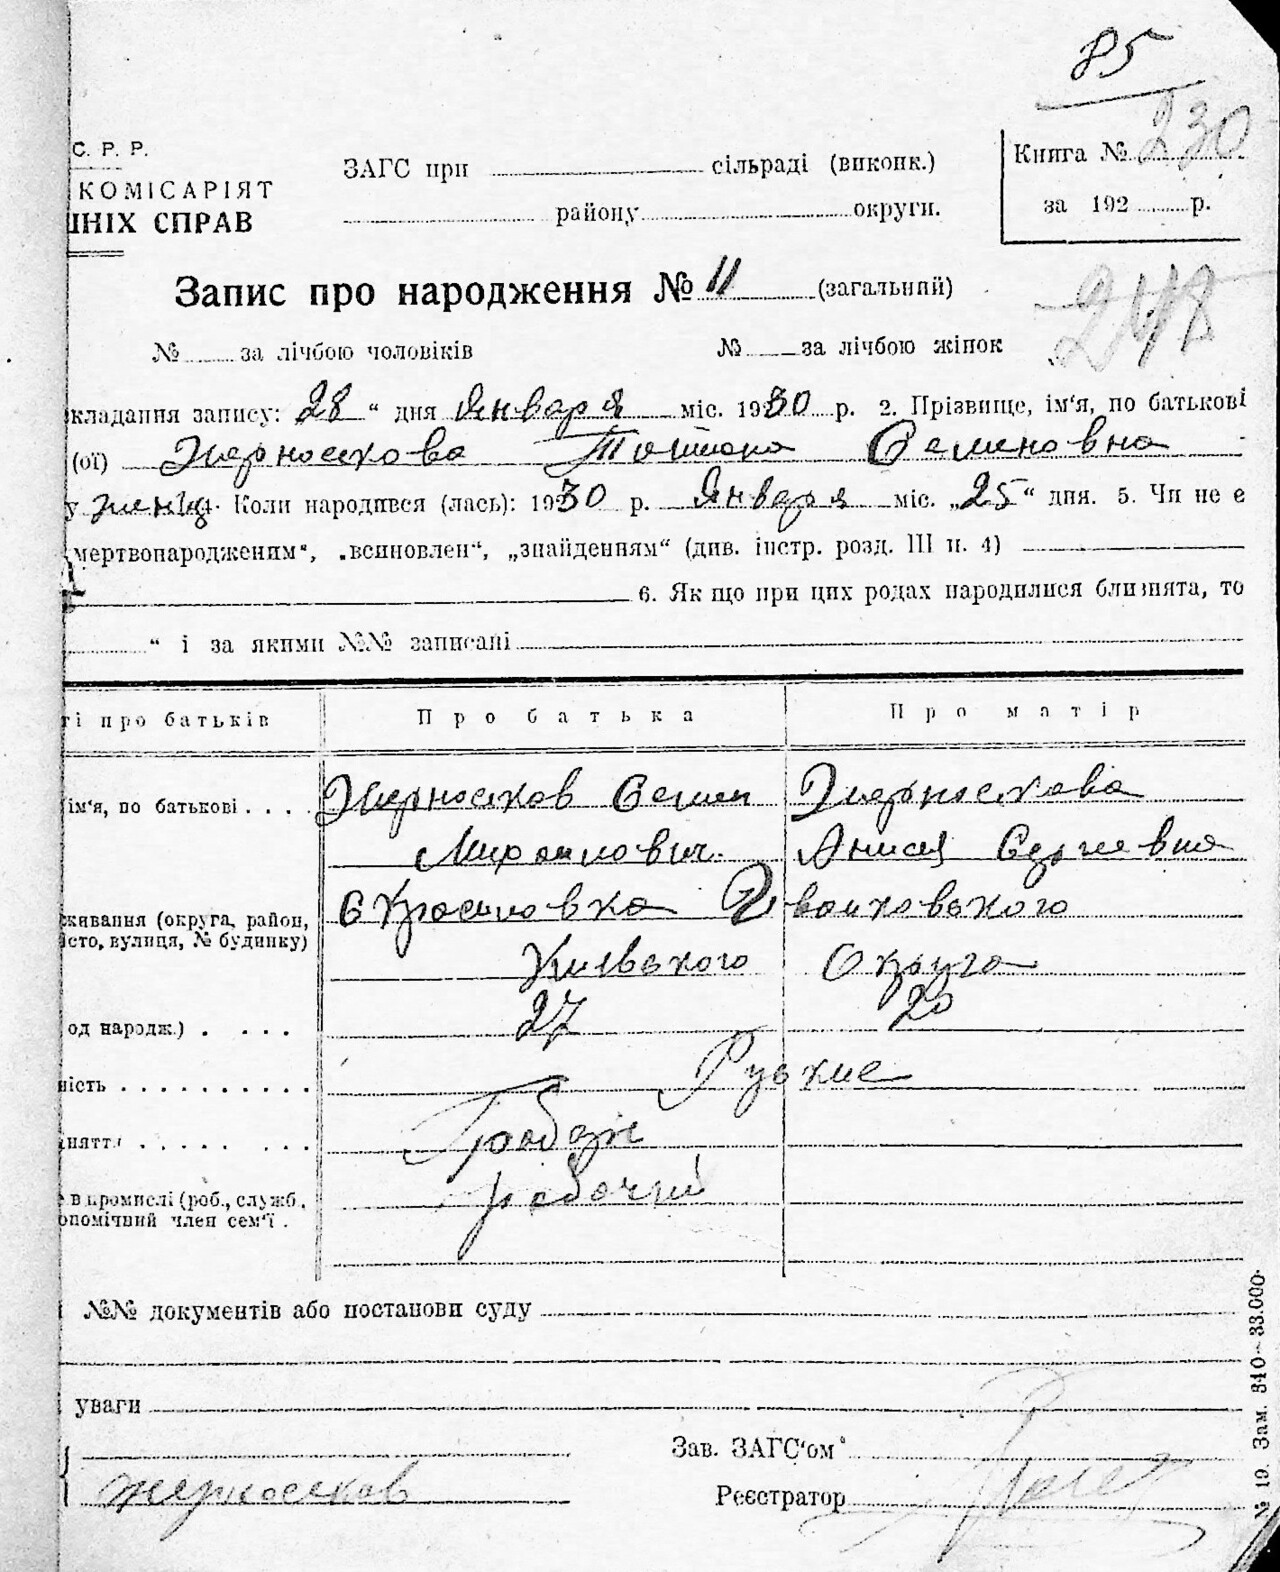 85
С. Р. Р.
КОМІСАРІЯТ
ШНІХ СПРАВ
ЗАГС при сільраді (виконк.)
району округи.
Книга № 230
за 192 р.
Запис про народження № 11 (загальний)
248
№ за лічбою чоловіків № за лічбою жінок
кладання запису: 28 “ дня Января міс. 1930 р. 2. Прізвище, ім'я, по батькові
(ої) Жерносекова Семеновна
у женщ. Коли народився (лась): 1930 р. Января міс. „25“ дня. 5. Чи не є
мертвонародженим“, „всиновлен“, „знайденням“ (див. інстр. розд. III п. 4)
6. Якщо при цих родах народилися близнята, то
“ і за якими №№ записані
ті про батьків Про батька Про матір
ім'я, по батькові . . . . Жерносеков Семен Жерносекова
Михайлович. Анисия Сергиевна
живання (округа, район, с Красиловка Иванковского
істо, вулиця, № будинку)
Киевского Округа
од народж.) . . . . 27 20
ність . . . . . . . . . . Руские
няття . . . . . . . .
в промислі (роб., служб, рабочий
опомічний член сем'ї .
№№ документів або постанови суду
уваги
Зав. ЗАГС'ом
Жерносеков Реєстратор
№ 19. Зам. 340—33.000.